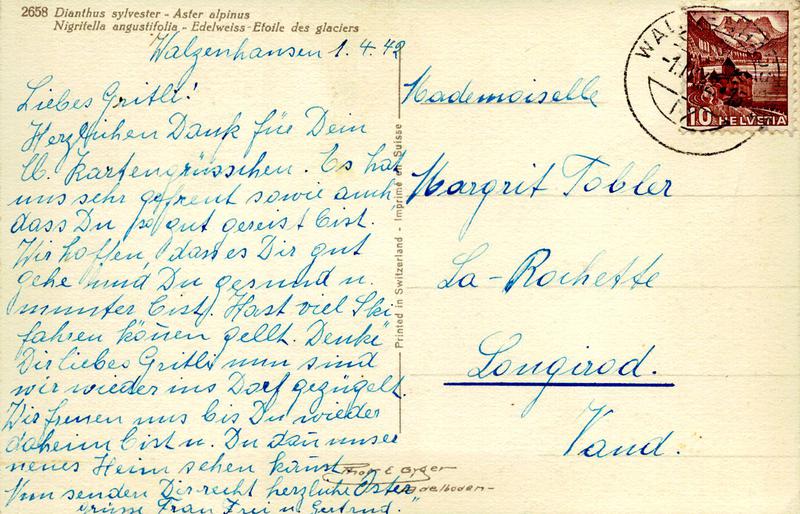 2658 Dianthus sylvester - Aster alpinus
Nigritella angustifolia - Edelweiss-Etoile des glaciers
Walzenhausen 1.4.42
Liebes Gritli!
Herzlichen Dank für Dein
lb. Kartengrüsschen. Es hat
uns sehr gefreut sowie auch
dass Du so gut gereist bist.
Wir hoffen, dass es Dir gut
gehe und Du gesund u.
munter bist. Hast viel Ski
fahren können gellt. Denke
Dir liebes Gritli nun sind
wir wieder ins Dorf gezügelt.
Wir freuen uns bis Du wieder
daheim bist u. Du dann unser
neues Heim sehen kannst.
Nun senden Dir recht herzliche Oster
grüsse Frau Frei u. Gertrud.
Printed in Switzerland - Imprimé en Suisse
Mademoiselle
Margrit Tobler
La-Rochette
Longirod.
Vaud.
Phot. E. Gyger
Adelboden
10 HELVETIA